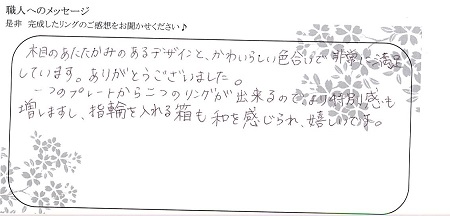 職人へのメッセージ
是非 完成したリングのご感想をお聞かせください♪
木目のあたたかみのあるデザインと、かわいらしい色合いで非常に満足
しています。ありがとうございました。
一つのプレートから二つのリングが出来るのでより特別感も
増しますし、指輪を入れる箱も和を感じられ、嬉しいです。